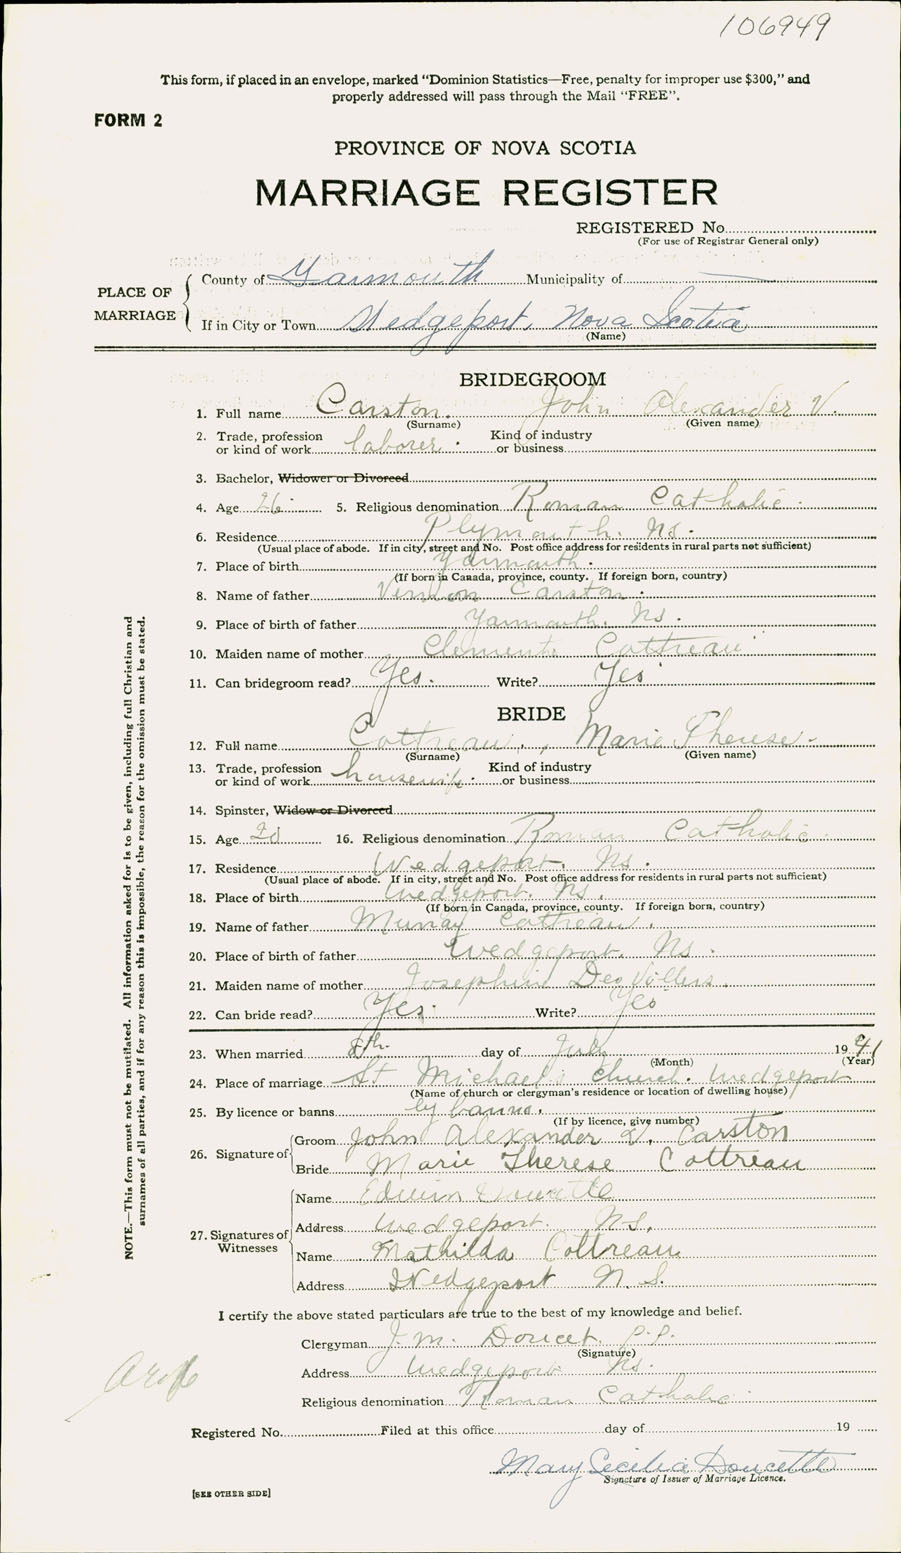 106949
This form, if placed in an envelope, marked “Dominion Statistics—Free, penalty for improper use $300,” and
properly addressed will pass through the Mail “FREE”.
FORM 2
PROVINCE OF NOVA SCOTIA
MARRIAGE REGISTER
REGISTERED No.
(For use of Registrar General only)
PLACE OF MARRIAGE
County of Yarmouth Municipality of
If in City or Town Wedgeport, Nova Scotia
(Name)
BRIDEGROOM
1. Full name Carston. John Alexander V.
(Surname) (Given name)
2. Trade, profession or kind of work laborer. Kind of industry or business
3. Bachelor, Widower or Divorced
4. Age 26 5. Religious denomination Roman Catholic.
6. Residence Plymouth. Ns.
(Usual place of abode. If in city, street and No. Post office address for residents in rural parts not sufficient)
7. Place of birth Yarmouth.
(If born in Canada, province, county. If foreign born, country)
8. Name of father Vernon Carston.
9. Place of birth of father Yarmouth. Ns.
10. Maiden name of mother Cottreau
11. Can bridegroom read? Yes. Write? Yes
BRIDE
12. Full name Cottreau, Marie Therese.
(Surname) (Given name)
13. Trade, profession or kind of work housewife. Kind of industry or business
14. Spinster, Widow or Divorced
15. Age 20 16. Religious denomination Roman Catholic.
17. Residence Wedgeport, Ns.
(Usual place of abode. If in city, street and No. Post office address for residents in rural parts not sufficient)
18. Place of birth Wedgeport. Ns.
(If born in Canada, province, county. If foreign born, country)
19. Name of father Murray Cottreau.
20. Place of birth of father Wedgeport, Ns.
21. Maiden name of mother Josephine
22. Can bride read? Yes. Write? Yes
23. When married 8th. day of July 1941
(Month) (Year)
24. Place of marriage St Michael's church. Wedgeport
(Name of church or clergyman's residence or location of dwelling house)
25. By licence or banns by banns.
(If by licence, give number)
26. Signature of
Groom John Alexander V. Carston
Bride Marie Therese Cottreau
27. Signatures of Witnesses
Name Edwin
Address Wedgeport. Ns.
Name Mathilda Cottreau
Address Wedgeport N.S.
I certify the above stated particulars are true to the best of my knowledge and belief.
Clergyman J. M. Doucet. P.P.
(Signature)
Address Wedgeport Ns.
Religious denomination Roman Catholic
Registered No. Filed at this office day of 19
Mary Cecilia Doucette
Signature of Issuer of Marriage Licence.
[SEE OTHER SIDE]
NOTE.—This form must not be mutilated. All information asked for is to be given, including full Christian and
surnames of all parties, and if for any reason this is impossible, the reason for the omission must be stated.